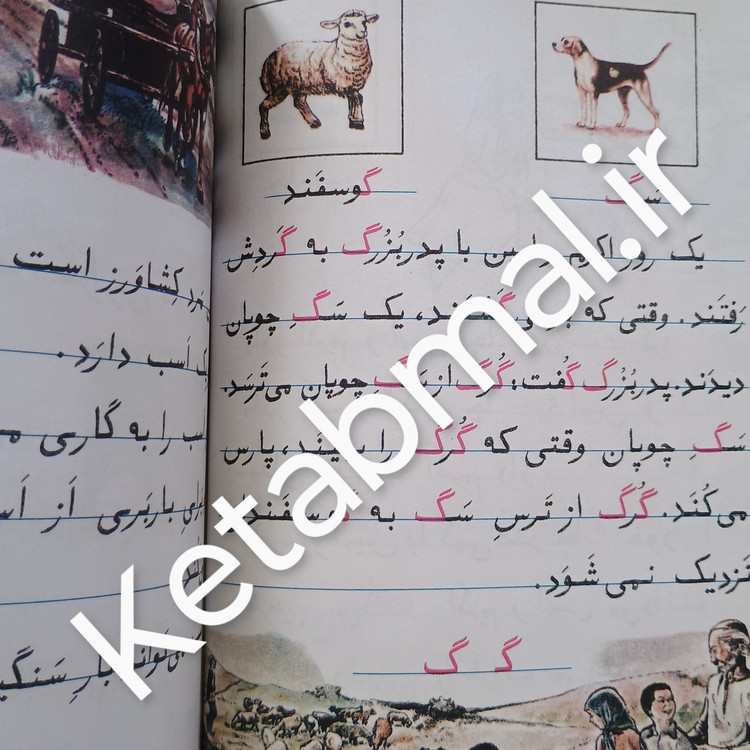 گوسفَند
سَگ
یک روز اکرم و امین با پدربُزُرگ به گَردِش
رَفتَند. وقتی که می‌گَشتَند، یک سَگِ چوپان
دیدَند. پدربُزُرگ گُفت: گُرگ از سَگِ چوپان می‌تَرسَد.
سَگِ چوپان وقتی که گُرگ را بِبینَد، پارس
می‌کُنَد. گُرگ از تَرسِ سَگ به گوسفَندان
نَزدیک نمی‌شَوَد.
گ گ
کِشاوَرز است
اَسب دارَد.
را به گاری
بَرایِ باربَری اَز
می‌تَوانَد بارِ سَنگین
Ketabmal.ir